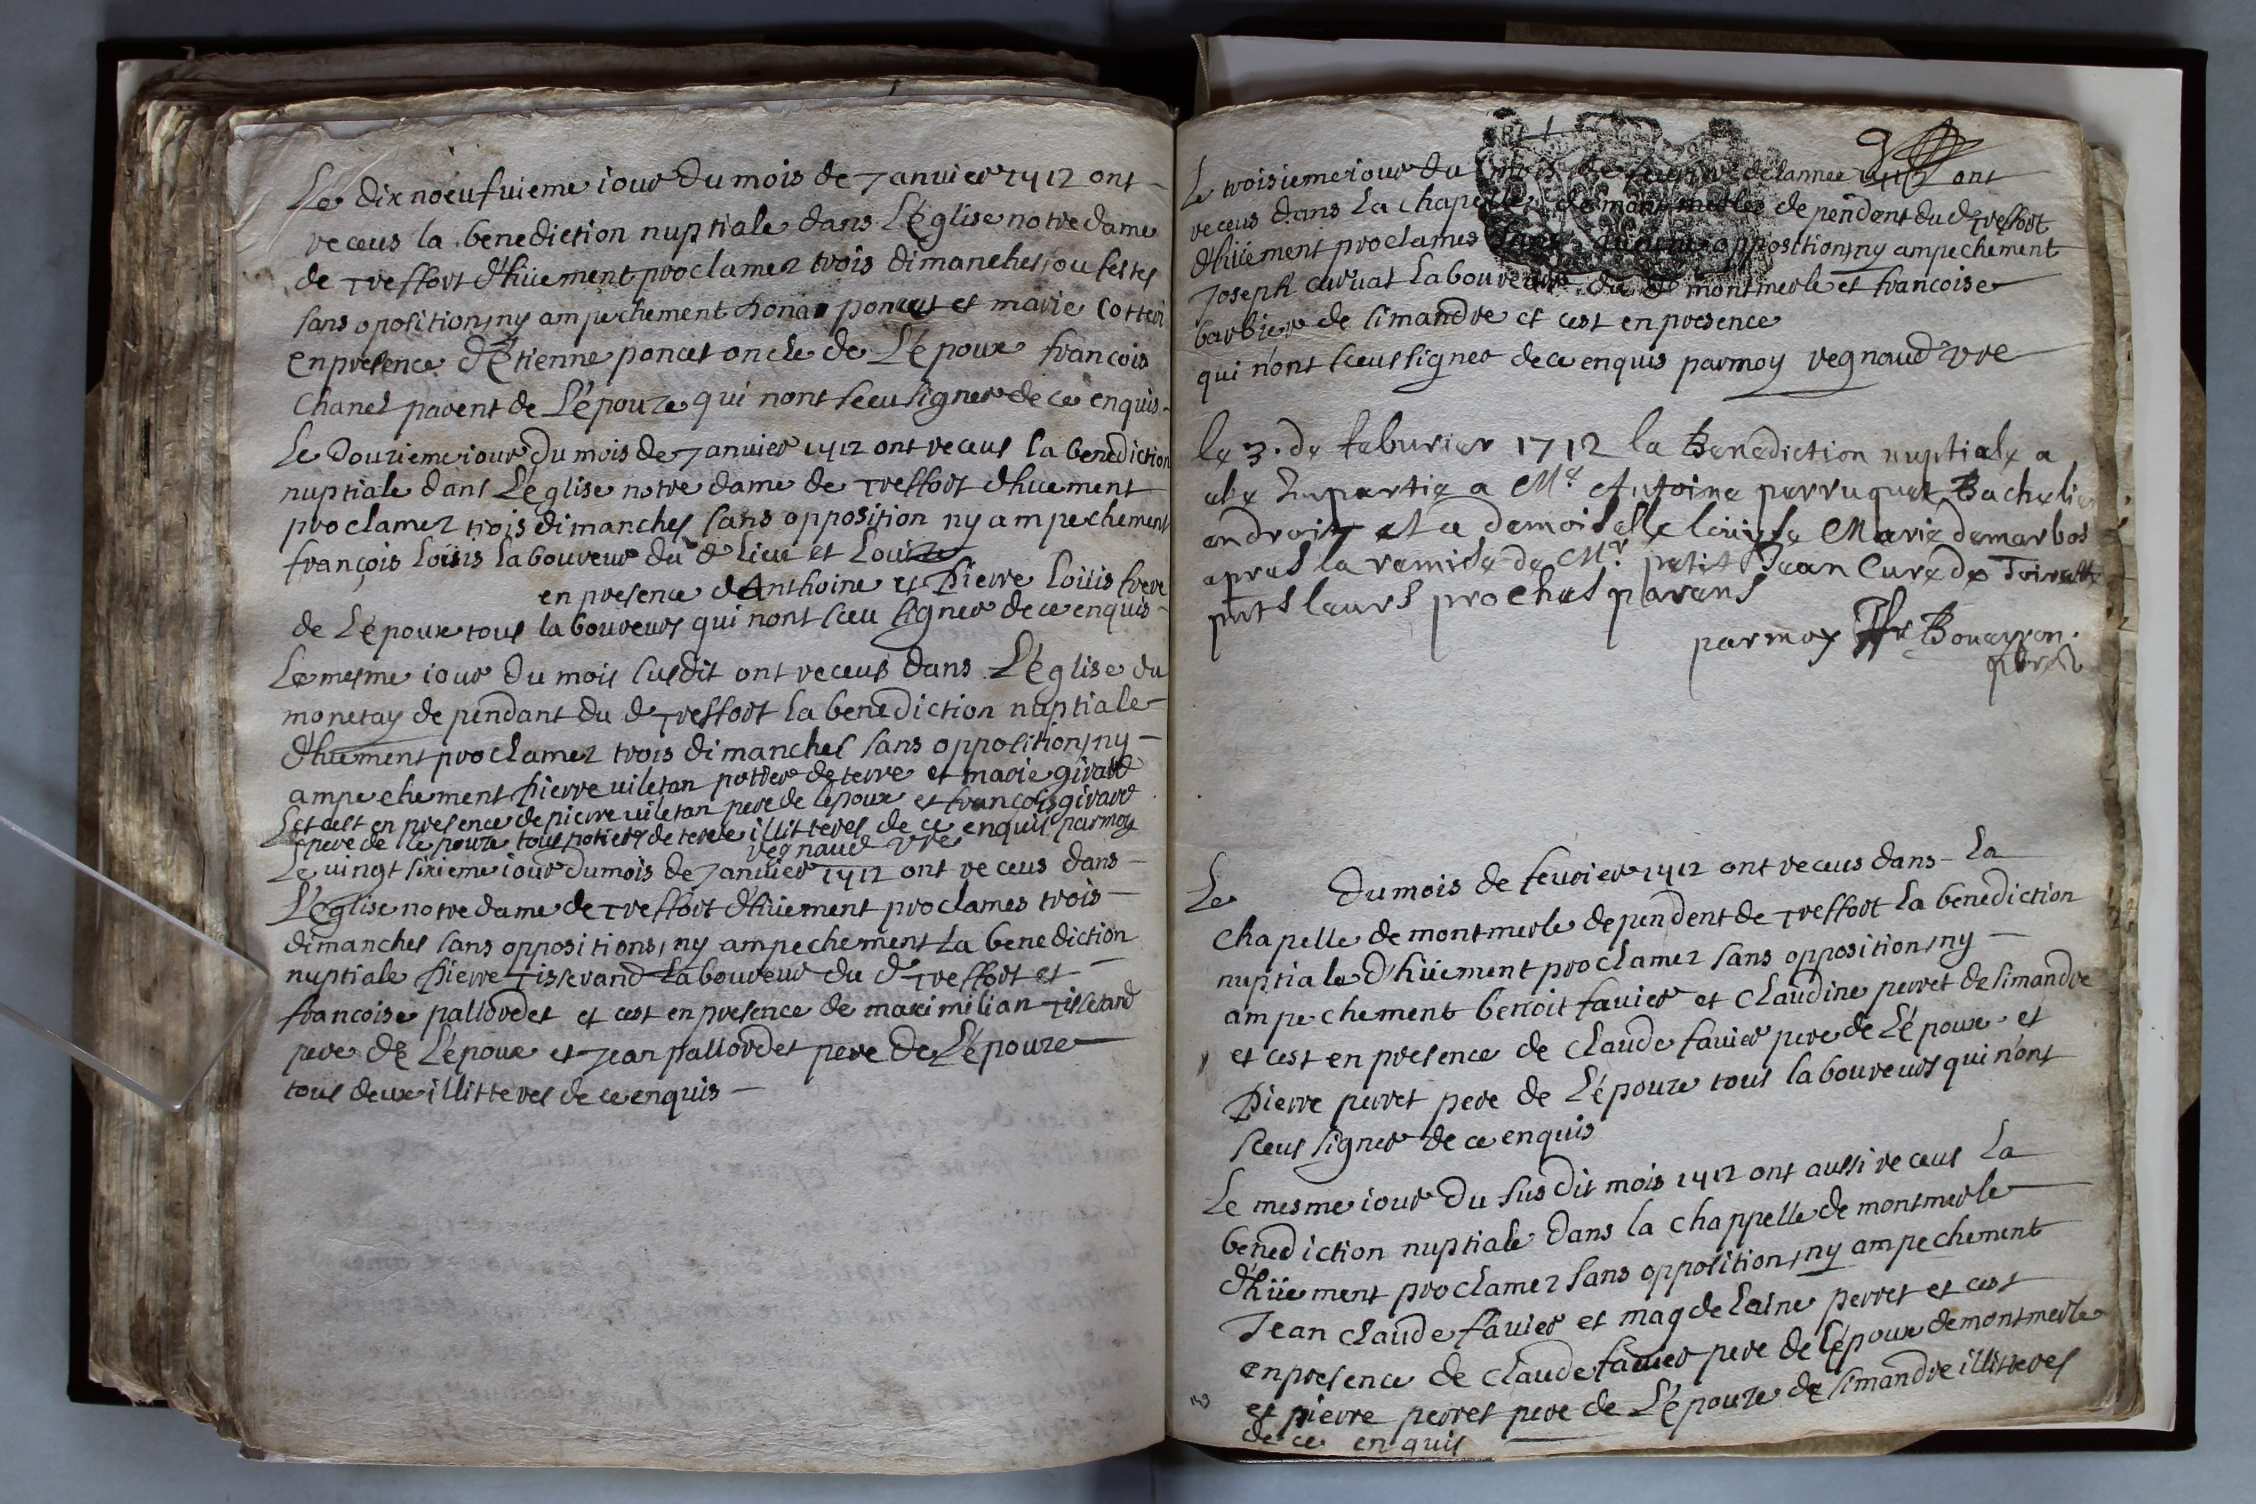 Le dix noeufuieme iour du mois de Janvier 1712 ont
receus la benediction nuptiale dans L'église notre dame
de Treffort dhüement proclamez trois dimanches, ou festes
sans oposition, ny ampechement poncet et marie Cottein
en presence d'Etienne poncet oncle de L'époux francois
Chanel parent de L'épouze qui nont sceu signer de ce enquis
Le douzieme iour du mois de Janvier 1712 ont receus la benediction
nuptiale dans L'église notre dame de Treffort dhuement
proclamez trois dimanches sans opposition ny ampechement
françois loüis laboureur du d lieu et Louize
en presence d'Anthoine et Pierre loüis frere
de L'époux tous laboureurs qui nont sceu signer de ce enquis
Le mesme iour du mois susdit ont receus dans L'église du
monetay dependant du d Treffort la benediction nuptiale
dhuement proclamez trois dimanches sans opposition, ny
ampechement Pierre uiletan pottier de terre et marie girard
et cest en presence de pierre uiletan pere de lépoux et françois girard
pere de lépouze tous potiers de terre illitteres de ce enquis par moy
regnaud vre
Le uingt sixieme iour du mois de Janvier 1712 ont receus dans
L'église notre dame de Treffort dhüement proclames trois
dimanches sans oppositions, ny ampechement La benediction
nuptiale Pierre Tisserand Laboureur du d Treffort et
francoise pallordet et cest en presence de maximilian Tisserand
pere de L'époux et Jean pallordet pere de L'épouze
tous deux illitteres de ce enquis
Le troisieme iour du mois de de lannee 1712 ont
receus dans la chapelle de montmerle dependent du d Treffort
dhüement proclames opposition, ny ampechement
Joseph laboureur du d montmerle et francoise
barbier de simandre et cest en presence
qui n'ont sceus signer de ce enquis par moy regnaud vre
le 3. de feburier 1712 la Benediction nuptiale a
ete Impartie a Mr Antoine perruquet Bachelier
en droit et a demoiselle Louise Marie demarbos
apres la remise de Mr. petit Jean Cure de
pnts leurs proches parens
par moy Bouayron
Le du mois de feurier 1712 ont receus dans la
chapelle de montmerle dependent de Treffort la benediction
nuptiale d'hüement proclamez sans opposition, ny
ampechement benoit fauier et claudine perret de simandre
et cest en presence de claude fauier pere de L'époux et
Pierre perret pere de L'épouze tous laboureurs qui n'ont
sceus signer de ce enquis
Le mesme iour du susdit mois 1712 ont aussi receus La
benediction nuptiale dans la chappelle de montmerle
d'hüement proclamez sans opposition, ny ampechement
Jean claude fauier et magdelaine perret et cest
en presence de claude fauier pere de l'époux de montmerle
et pierre perret pere de L'épouze de simandre illitteres
de ce enquis